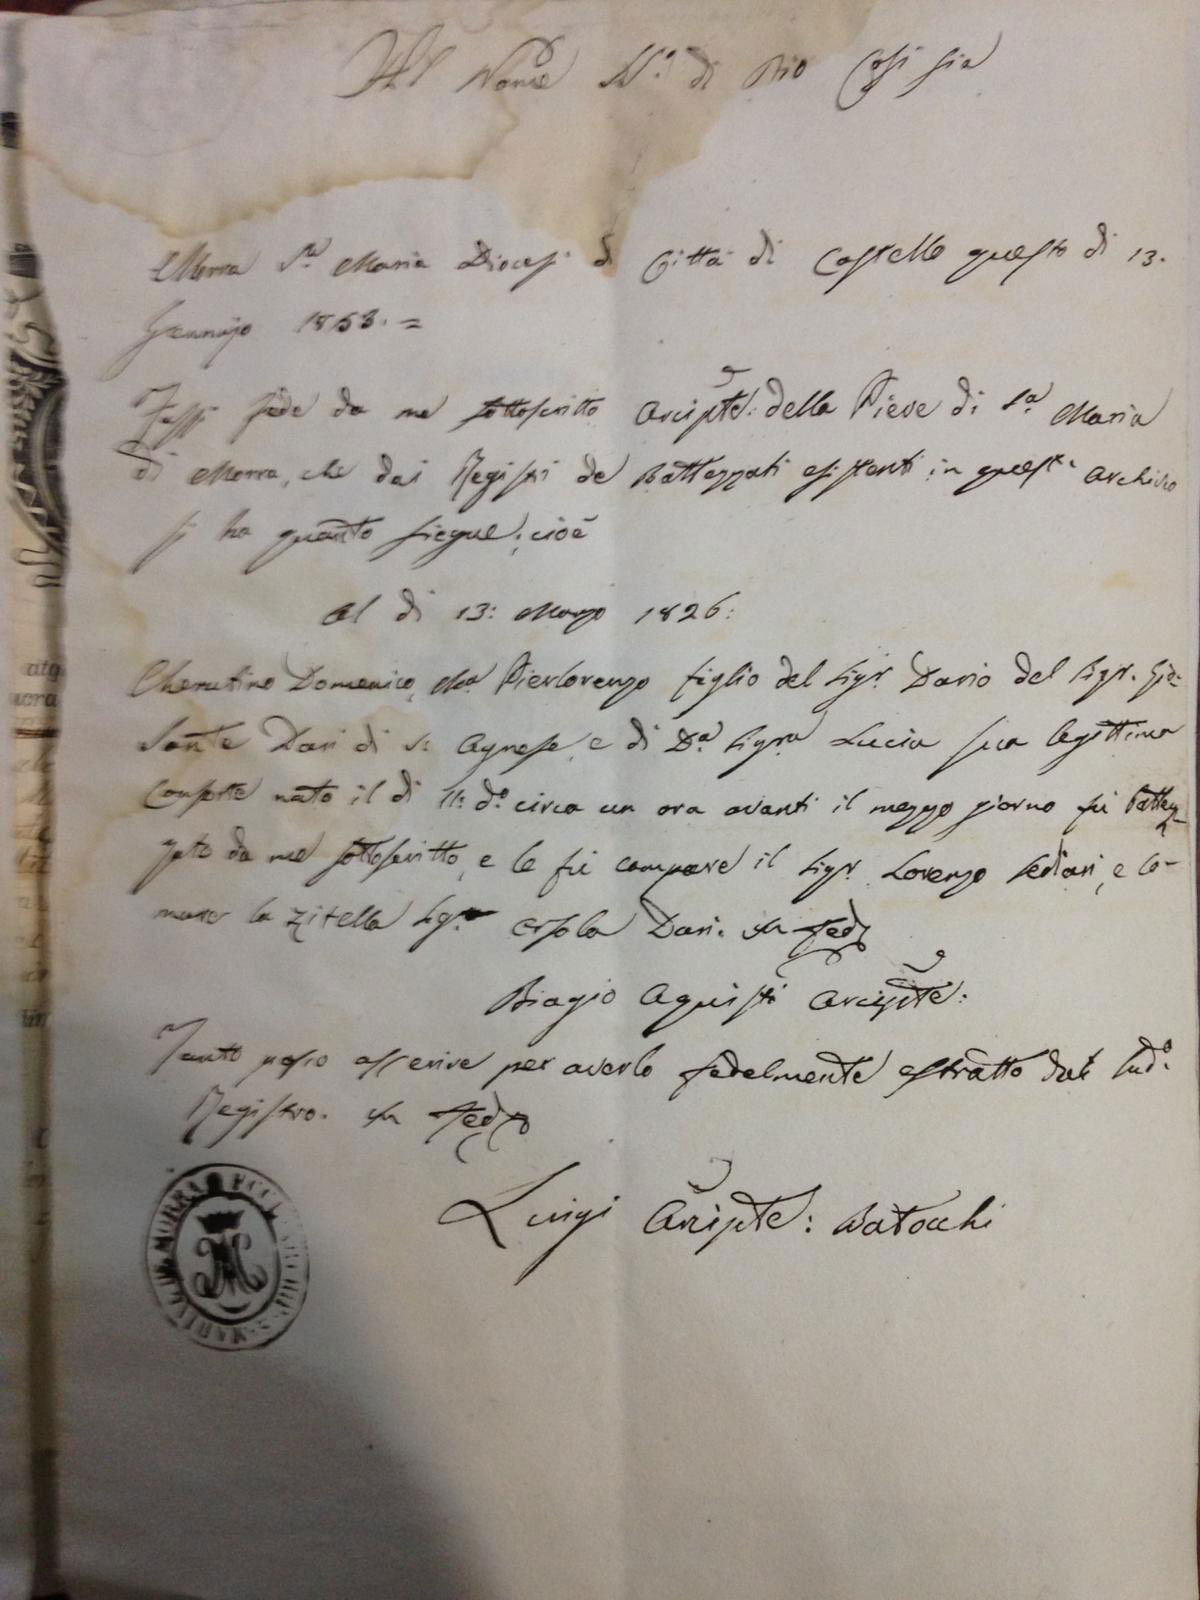 Al Nome SS.o di Dio Così sia
Morra S.a Maria Diocesi di Città di Castello questo dì 13.
Gennajo 1853. =
Fassi fede da me sottoscritto Arcipte: della Pieve di S.a Maria
di Morra, che dai Registri de Battezzati esistenti in quest' Archivio
si ha quanto siegue; cioè
Al dì 13: Marzo 1826:
Cherubino Domenico, Ma Pierlorenzo figlio del Sigr. Dario del Sigr. Gio:
Sante Dari di S: Agnese, e di D.a Sigra Lucia sua legittima
Consorte nato il dì 11: d.o circa un ora avanti il mezzo giorno fù Battez-
zato da me sottoscritto, e le fù compare il Sigr. Lorenzo Sediari, e co-
mare la Zitella Sigra Orsola Dari. In Fede
Biagio Agusti Arcipte:
Tanto posso asserire per averlo fedelmente estratto dal Sud.o
Registro. In Fede
Luigi Arcipte: Batocchi
MORRA ECCL. ARCHIP. S. MARIAE DE